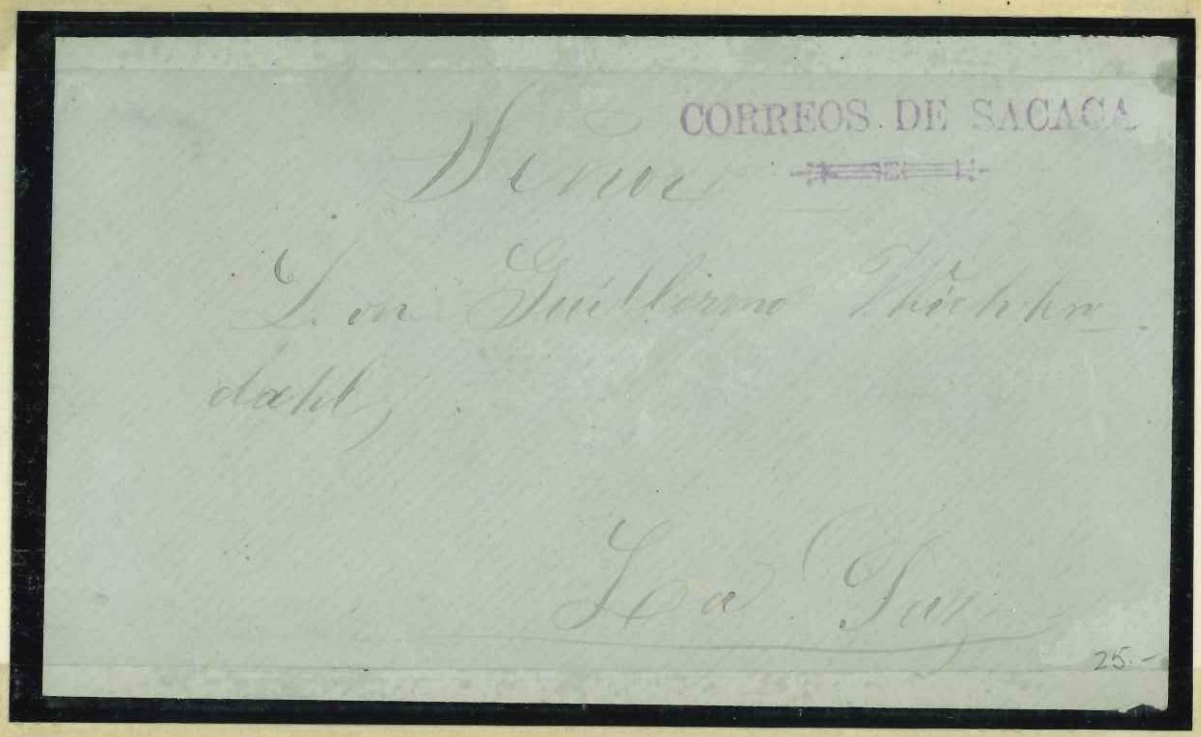 CORREOS DE SACACA
Señor
Don Guillermo
dahl
La Paz
25.-